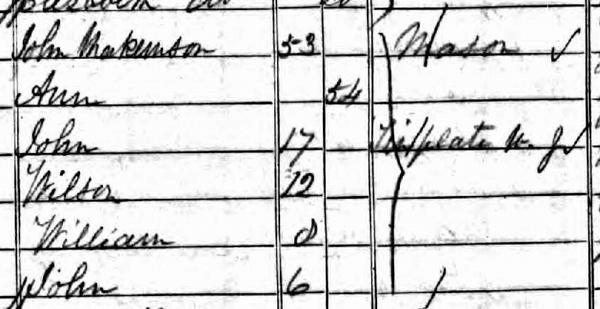 John Makinson 53 Mason ✓
Ann 54
John 17 Tinplate W. J ✓
Wilson 12
William 8
John 6